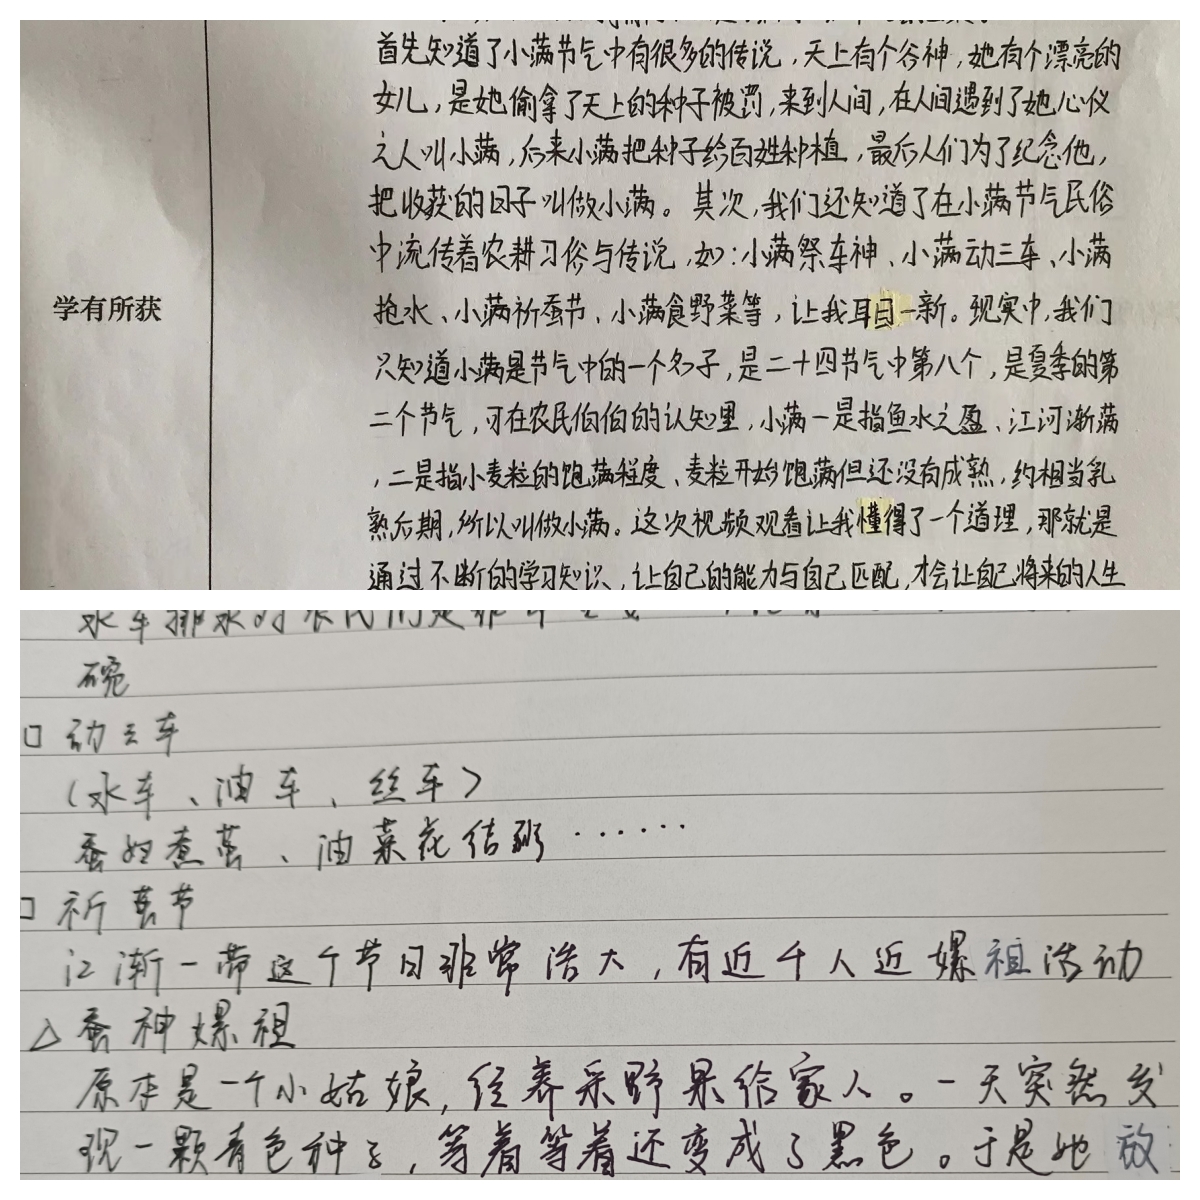 首先知道了小满节气中有很多的传说，天上有个谷神，她有个漂亮的
女儿，是她偷拿了天上的种子被罚，来到人间，在人间遇到了她心仪
之人叫小满，后来小满把种子给百姓种植，最后人们为了纪念他，
把收获的日子叫做小满。其次，我们还知道了在小满节气民俗
中流传着农耕习俗与传说，如：小满祭车神、小满动三车、小满
学有所获
抢水、小满祈蚕节、小满食野菜等，让我耳目一新。现实中，我们
只知道小满是节气中的一个名子，是二十四节气中第八个，是夏季的第
二个节气，可在农民伯伯的认知里，小满一是指鱼水之盈、江河渐满
，二是指小麦粒的饱满程度、麦粒开始饱满但还没有成熟，约相当乳
熟后期，所以叫做小满。这次视频观看让我懂得了一个道理，那就是
通过不断的学习知识，让自己的能力与自己匹配，才会让自己将来的人生
碗
动三车
（水车、油车、丝车）
蚕妇煮茧、油菜花结 ······
祈茧节
江浙一带这个节日非常浩大，有近千人近嫘祖活动
△蚕神嫘祖
原本是一个小姑娘，经养采野果给家人。一天突然发
现一颗青色种子，等着等着还变成了黑色。于是她放